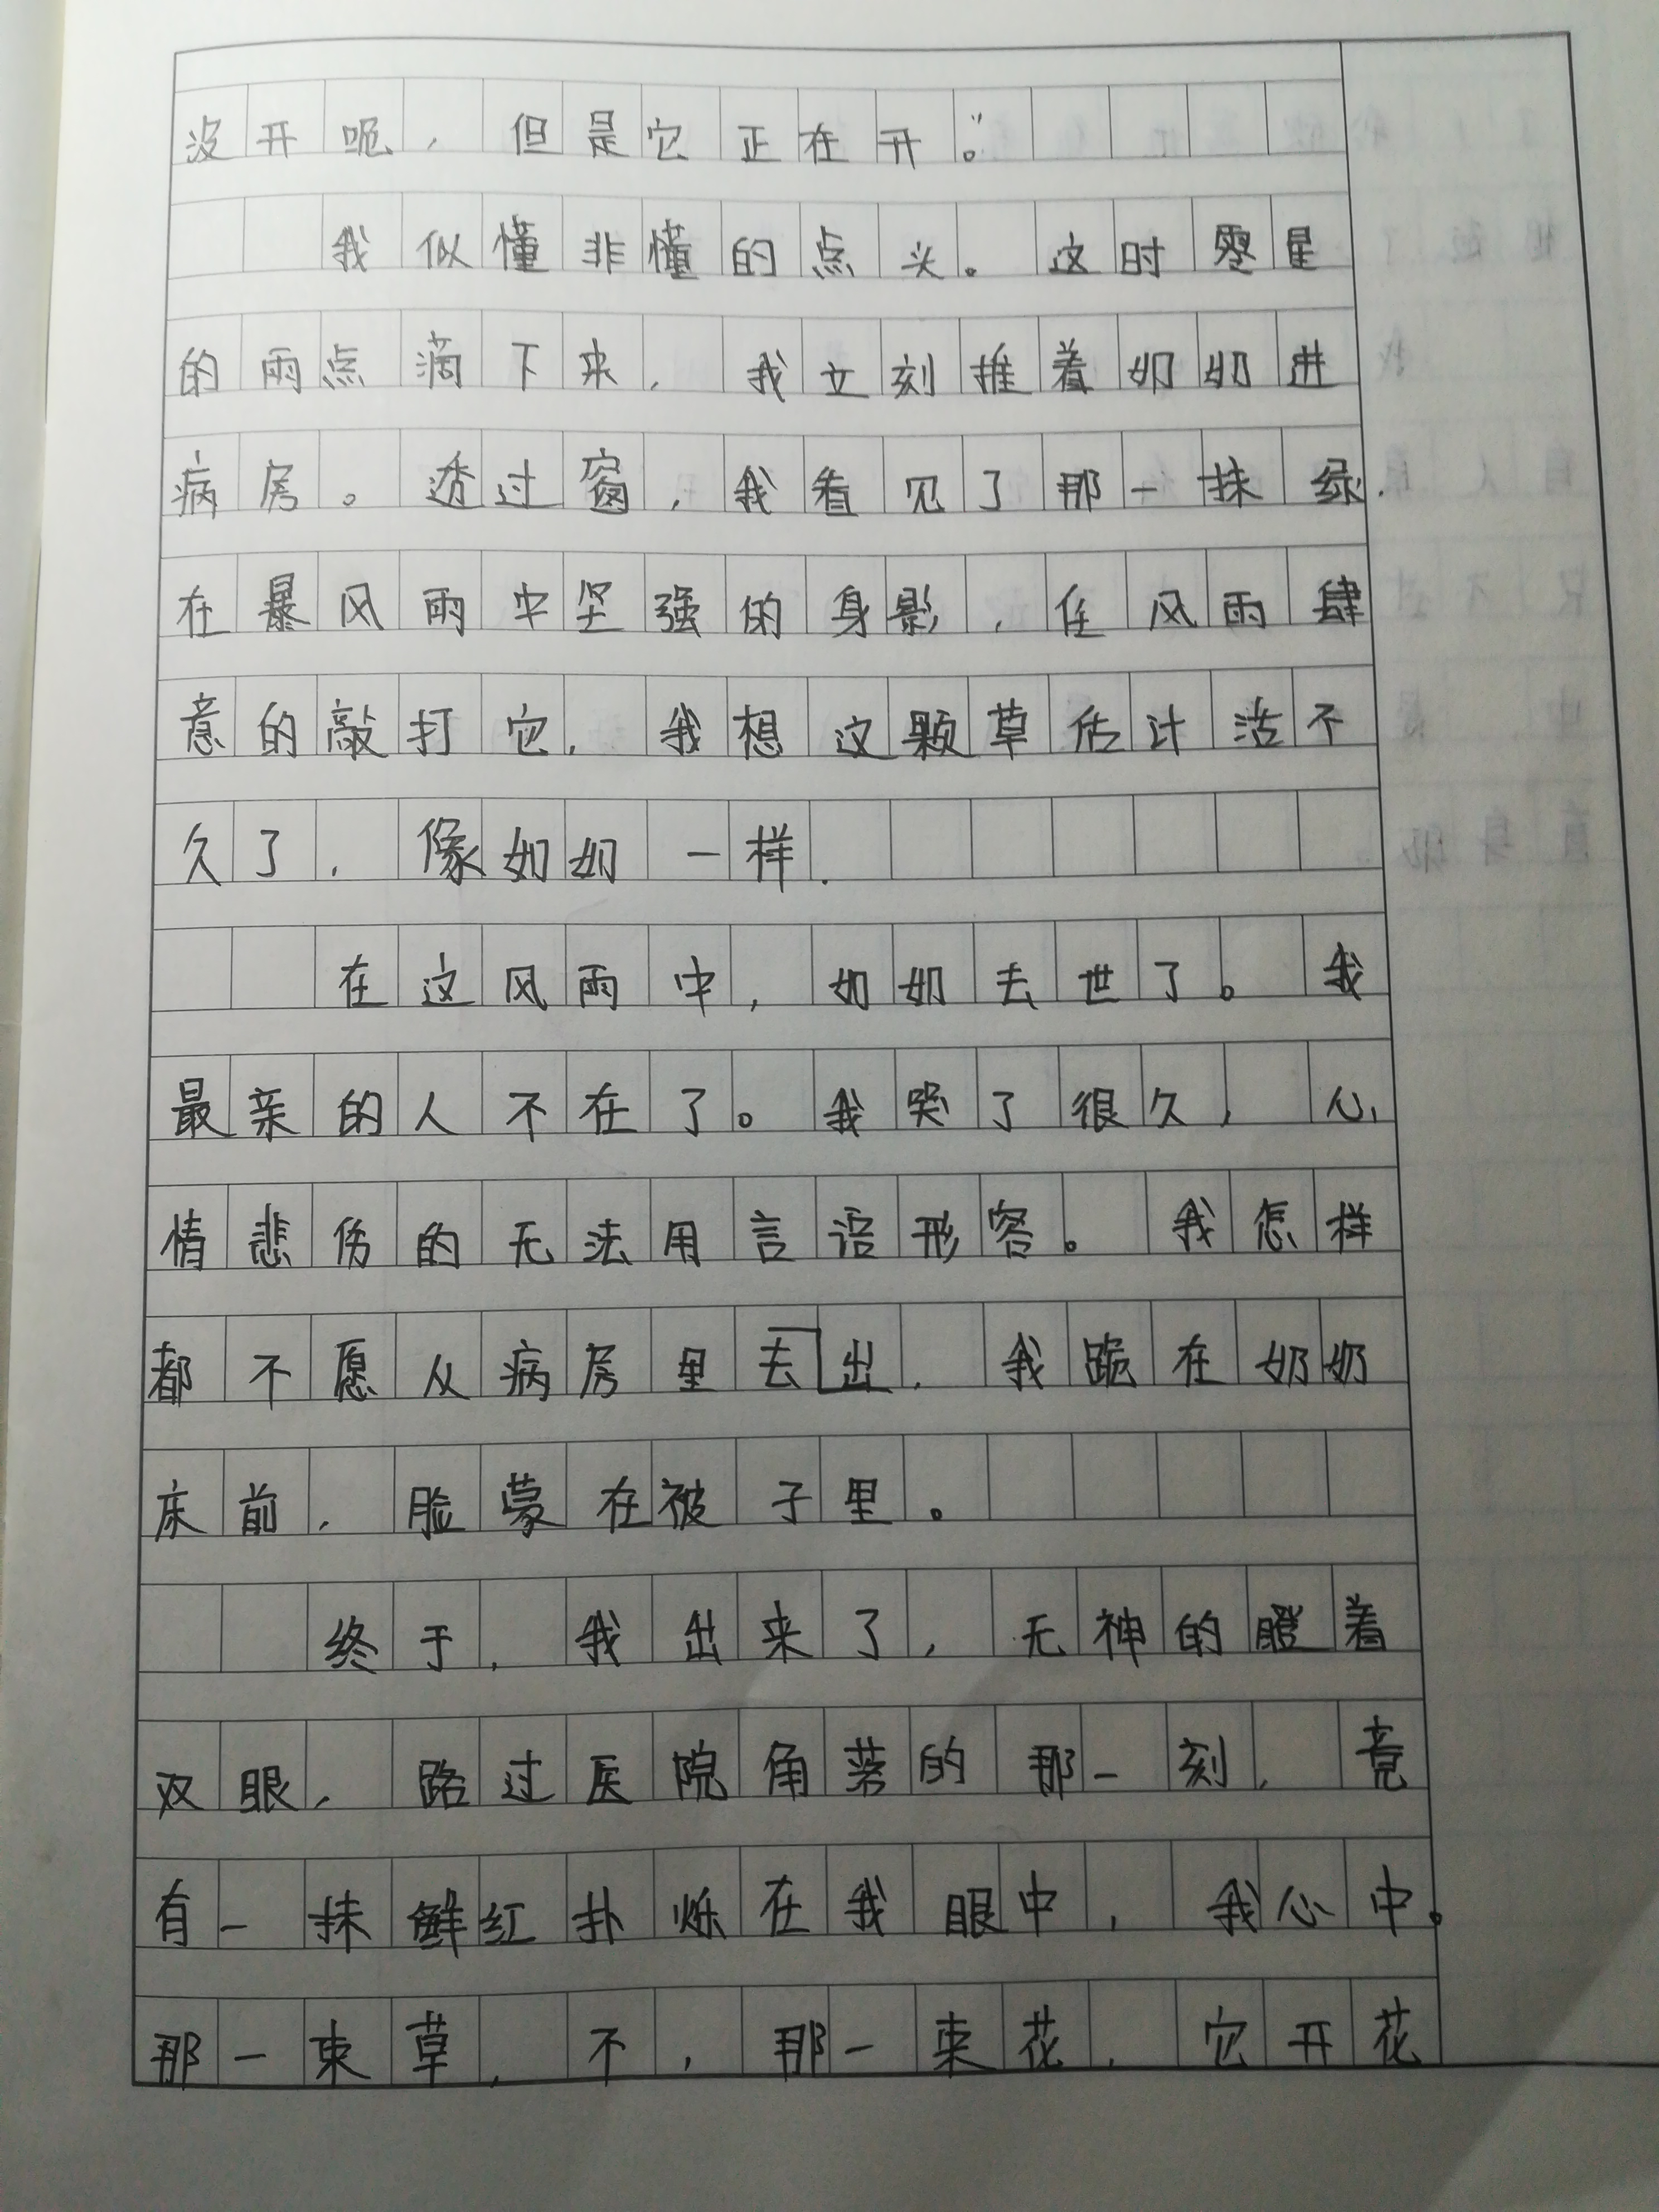 没开呢，但是它正在开。”
我似懂非懂的点头。这时零星
的雨点滴下来，我立刻推着奶奶进
病房。透过窗，我看见了那一抹绿，
在暴风雨中坚强的身影，任风雨肆
意的敲打它，我想这颗草估计活不
久了，像奶奶一样.
在这风雨中，奶奶去世了。我
最亲的人不在了。我哭了很久，心
情悲伤的无法用言语形容。我怎样
都不愿从病房里去出，我跪在奶奶
床前，脸蒙在被子里。
终于，我出来了，无神的瞪着
双眼，路过医院角落的那一刻，竟
有一抹鲜红扑烁在我眼中，我心中。
那一束草，不，那一束花，它开花